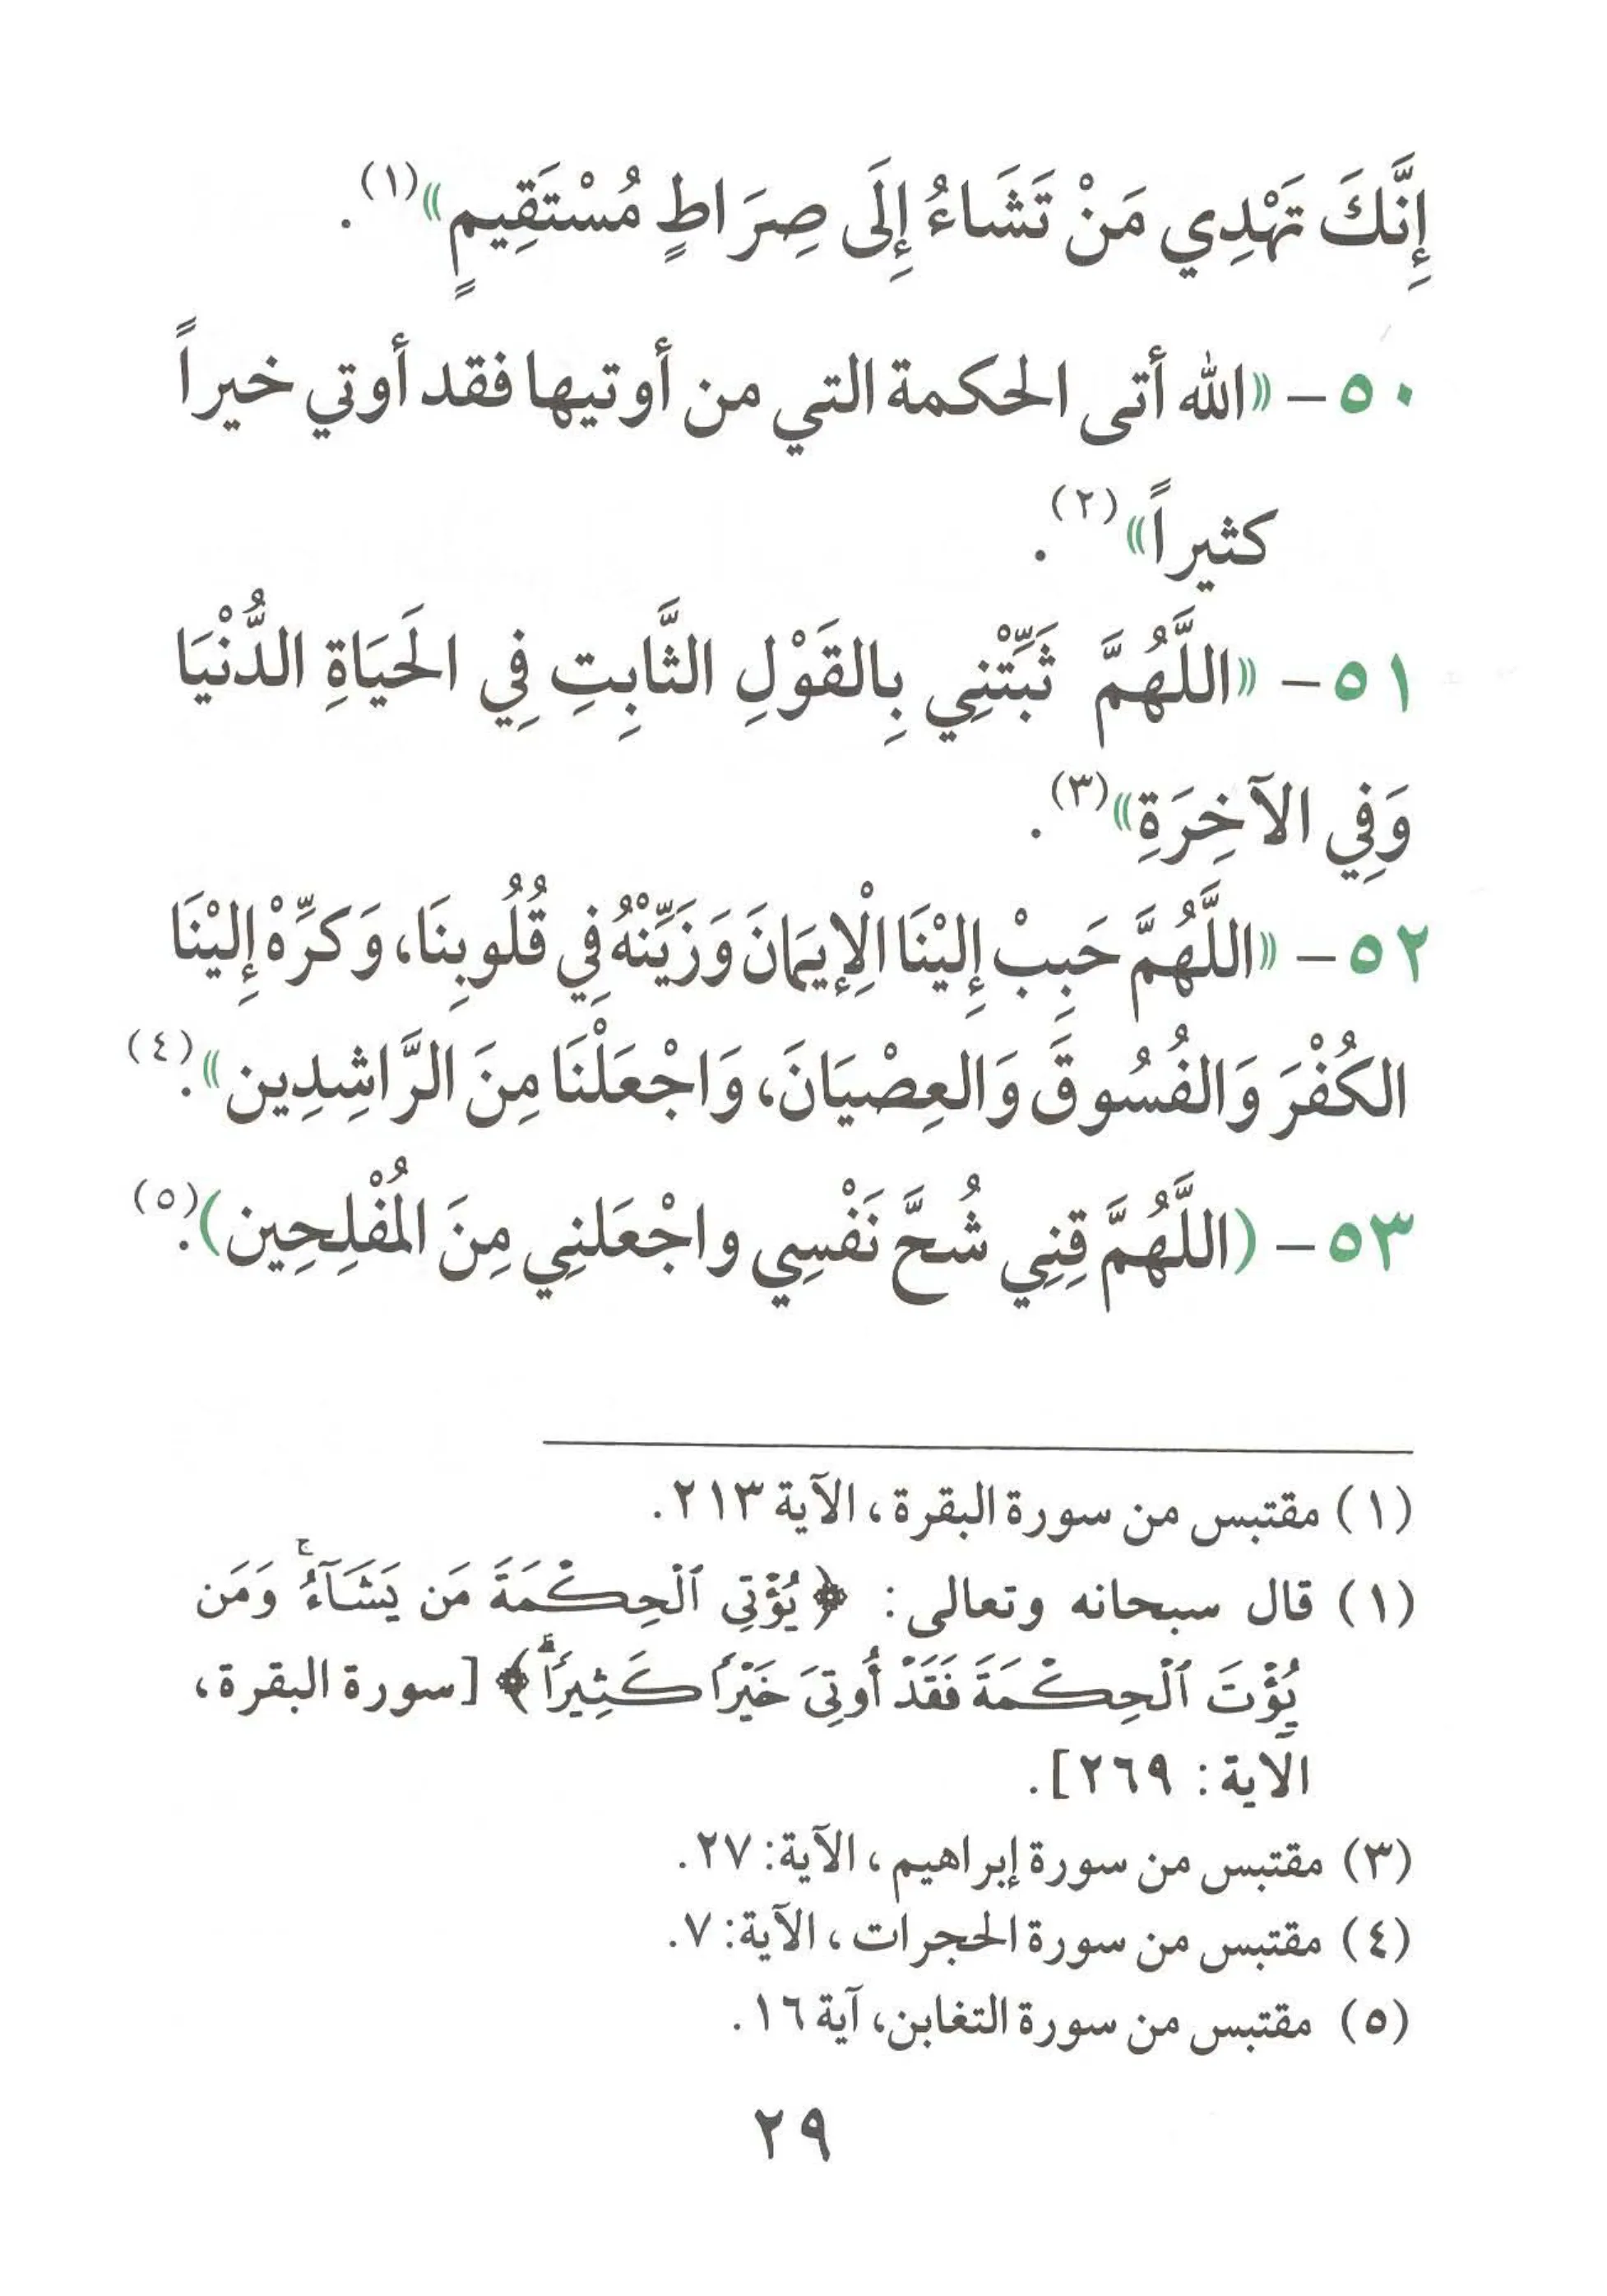 إِنَّكَ تَهْدِي مَنْ تَشَاءُ إِلَى صِرَاطٍ مُسْتَقِيمٍ»(١).
٥٠ – «الله أتى الحكمة التي من أوتيها فقد أوتي خيراً
كثيراً»(٢).
٥١ – «اللَّهُمَّ ثَبِّتْنِي بِالقَوْلِ الثَّابِتِ فِي الحَيَاةِ الدُّنْيَا
وَفِي الآخِرَةِ»(٣).
٥٢ – «اللَّهُمَّ حَبِبْ إِليْنَا الْإِيمَانَ وَزَيِّنْهُ فِي قُلُوبِنَا، وَكرِّهْ إِليْنَا
الكُفْرَ وَالفُسُوقَ وَالعِصْيَانَ، وَاجْعَلْنَا مِنَ الرَّاشِدِين».(٤)
٥٣ – (اللَّهُمَّ قِنِي شُحَّ نَفْسِي واجْعَلنِي مِنَ المُفْلِحِين).(٥)
(١) مقتبس من سورة البقرة، الآية ٢١٣.
(١) قال سبحانه وتعالى: ﴿يُؤْتِى ٱلْحِكْمَةَ مَن يَشَآءُۚ وَمَن
يُؤْتَ ٱلْحِكْمَةَ فَقَدْ أُوتِىَ خَيْرًا كَثِيرًاۗ﴾ [سورة البقرة،
الآية: ٢٦٩].
(٣) مقتبس من سورة إبراهيم، الآية: ٢٧.
(٤) مقتبس من سورة الحجرات، الآية: ٧.
(٥) مقتبس من سورة التغابن، آية ١٦.
٢٩